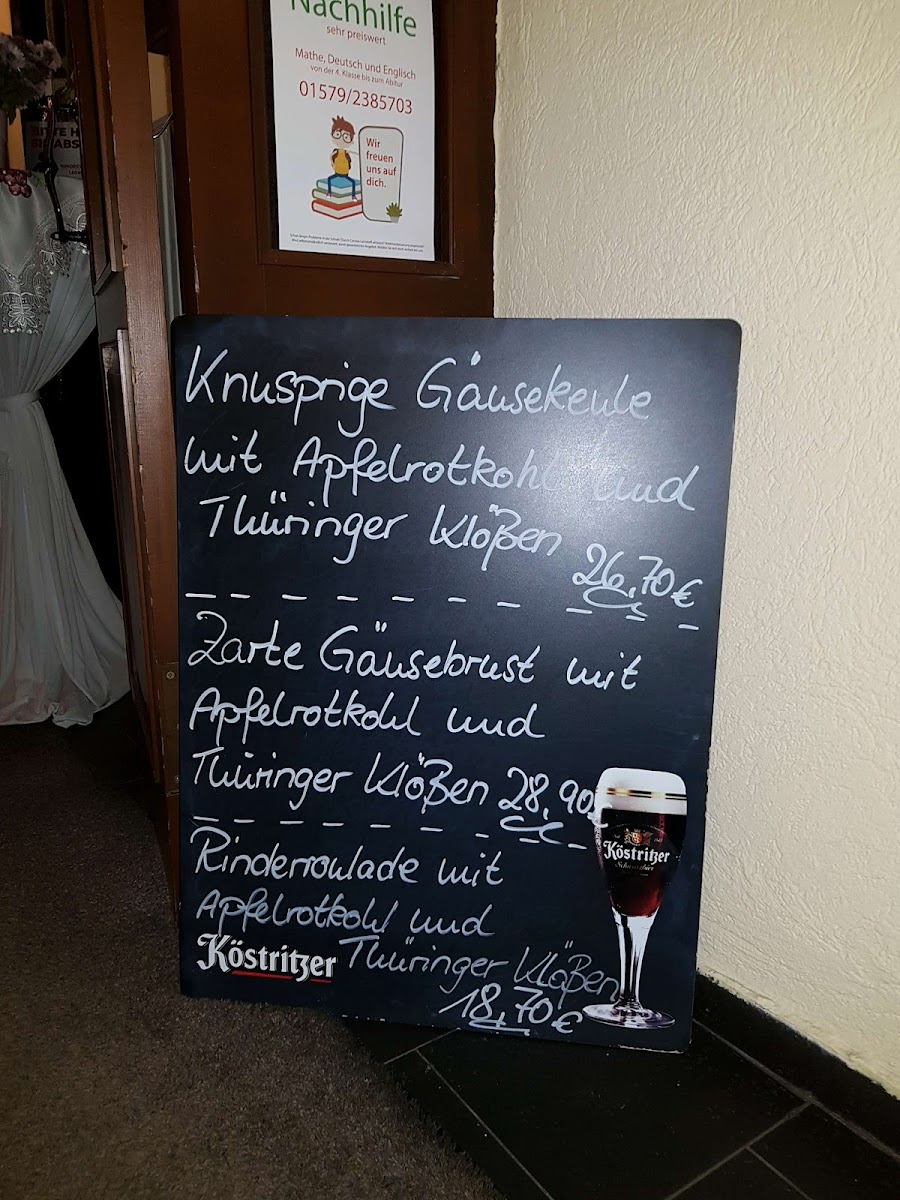 Nachhilfe
sehr preiswert
Mathe, Deutsch und Englisch
von der 4. Klasse bis zum Abitur
01579/2385703
Wir
freuen
uns auf
dich.
Knusprige Gänsekeule
mit Apfelrotkohl und
Thüringer Klößen
26,70 €
Zarte Gänsebrust mit
Apfelrotkohl und
Thüringer Klößen 28,90
Rinderroulade mit
Apfelrotkohl und
Köstritzer Thüringer Klößen
18,70 €
Köstritzer
Schwarzbier